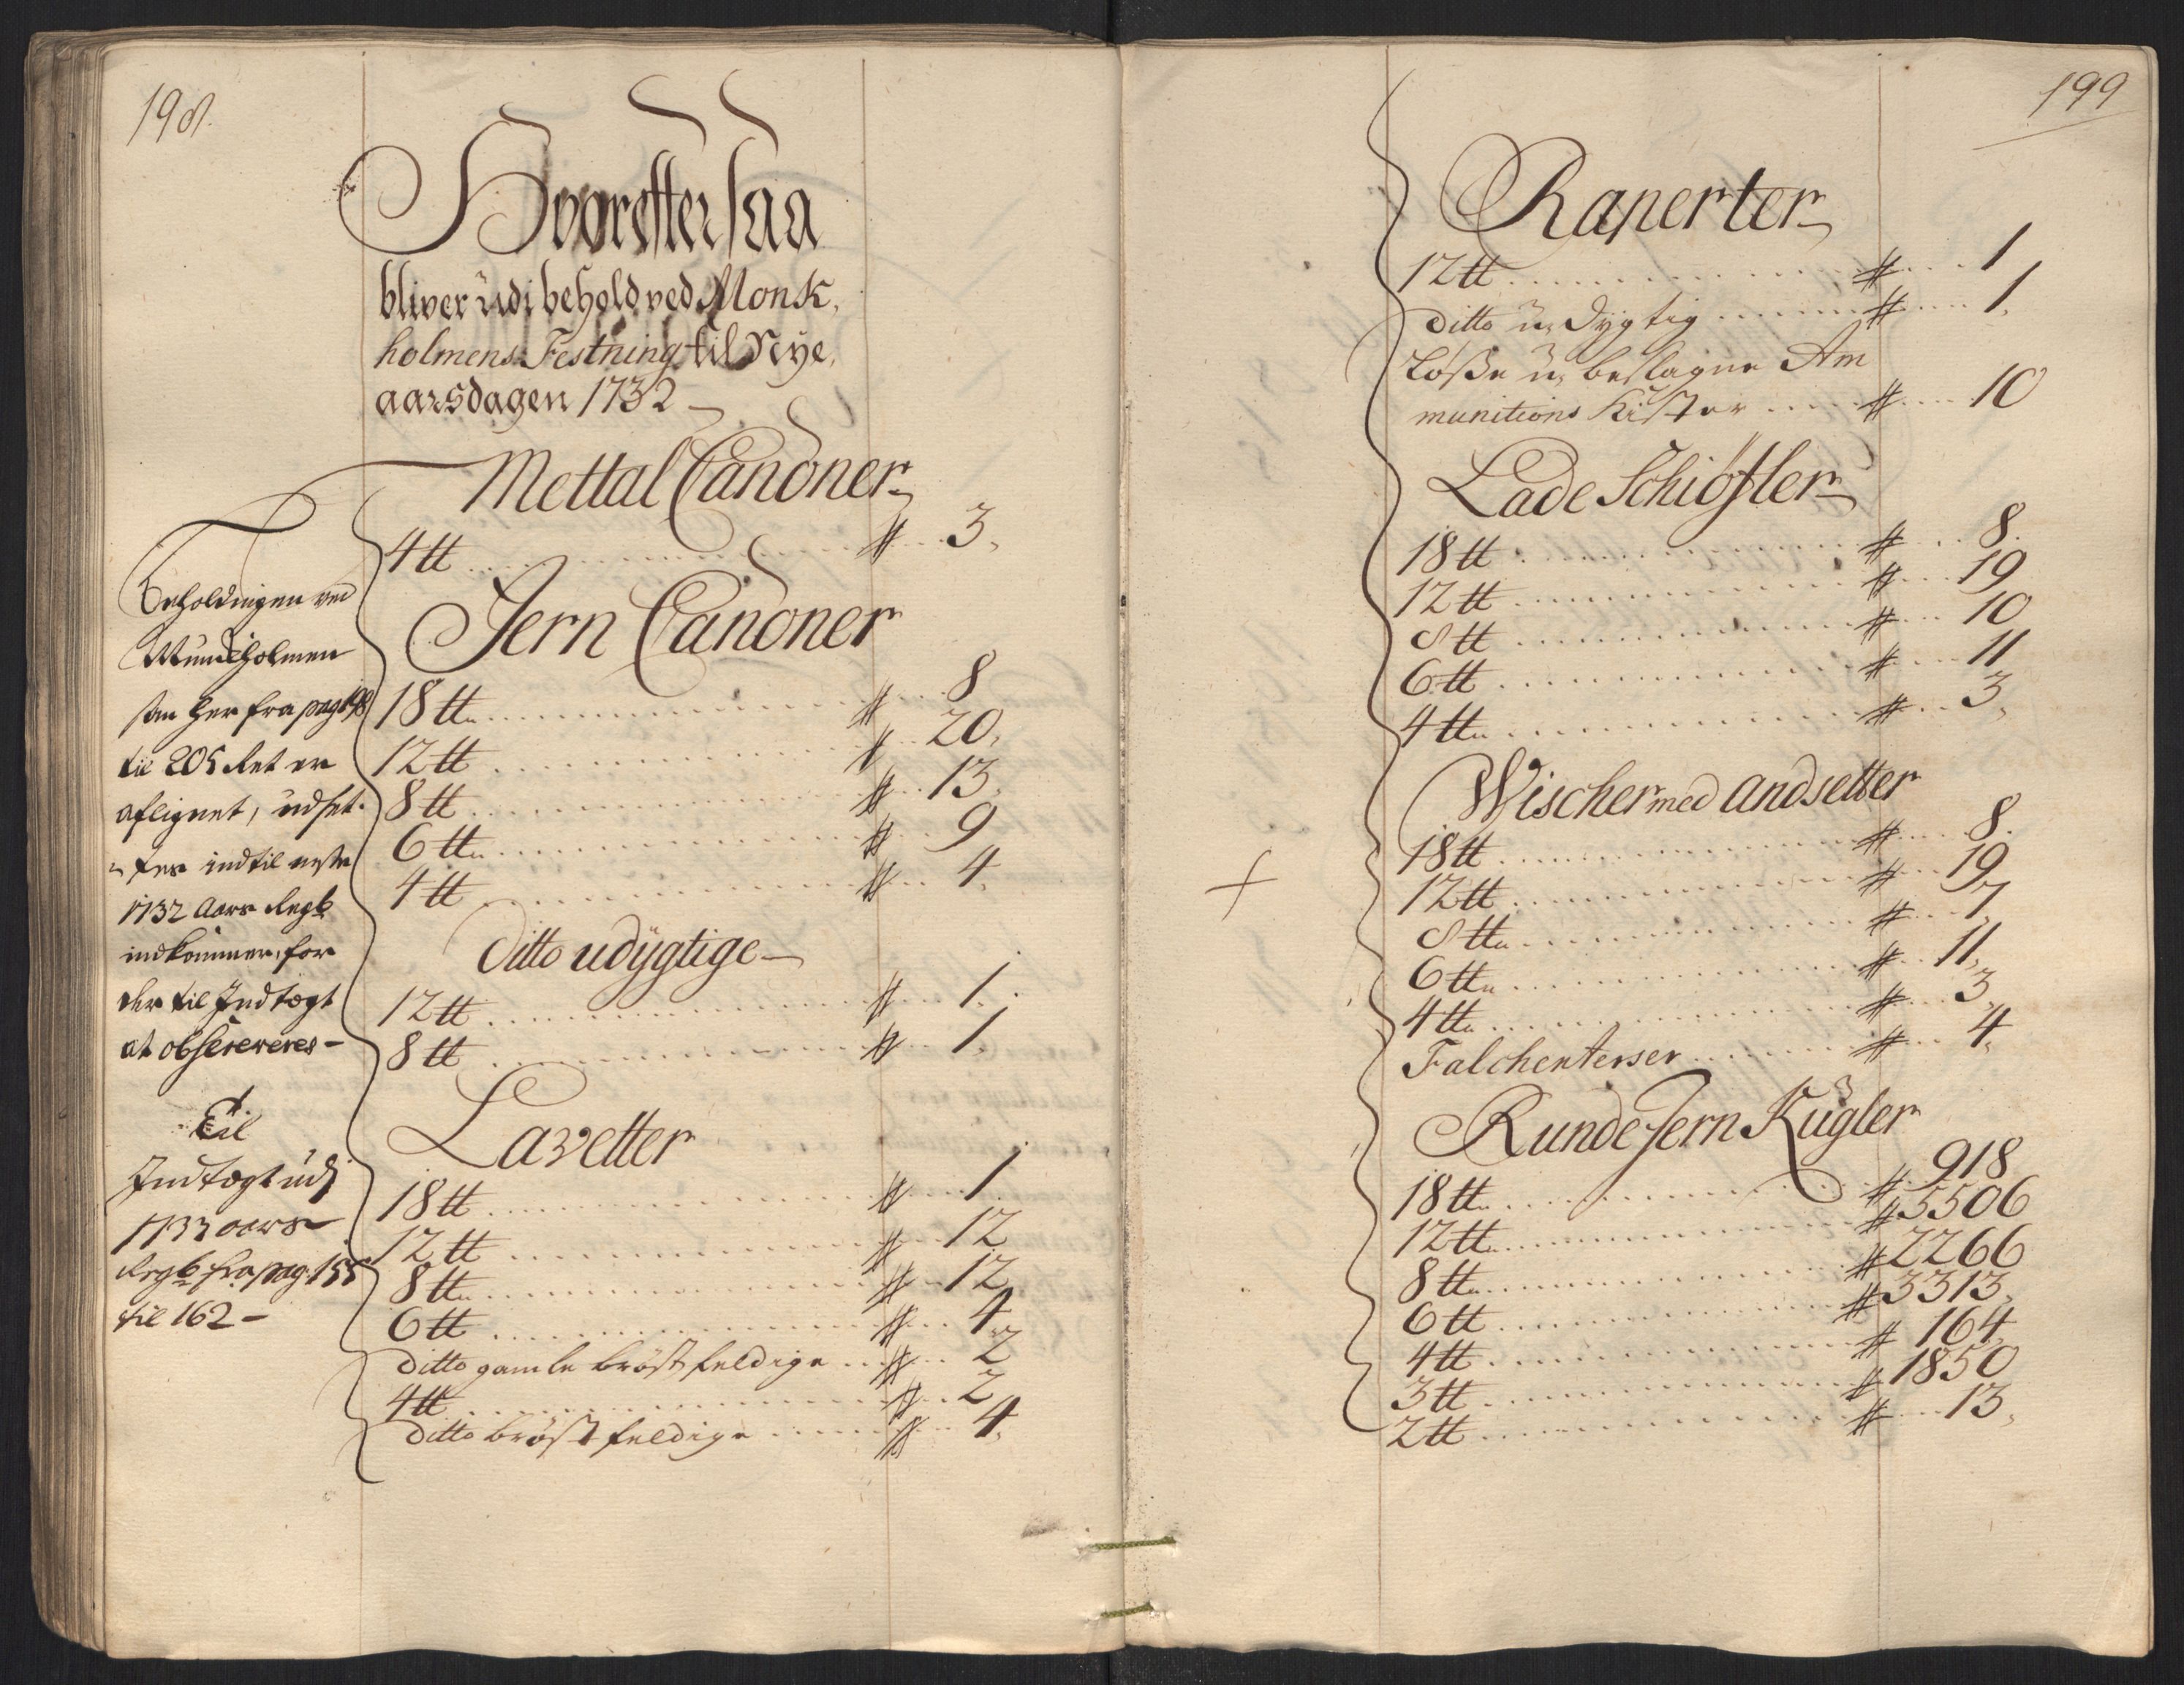 198.
Hvorefter saa
bliver udi behold ved Monk,
holmens Festning til Nye,
aarsdagen 1732
Mettal Canoner
4 ℔ # 3,
Jern Canoner
18 ℔ # 8
12 ℔ # 20,
8 ℔ # 13,
6 ℔ # 9
4 ℔ # 4,
Ditto udÿgtige
12 ℔ # 1.
8 ℔ # 1.
Lavetter
18 ℔ # 1
12 ℔ # 12
8 ℔ # 12
6 ℔ # 4
ditto gamle bröstfeldige # 2
4 ℔ # 2
ditto bröstfeldige # 4,
Beholdingen ved
Munkholmen
saa her fra pag 198
til 205 det er
aflignet, udset-
tes indtil neste
1732 Aars Regb
indkommer, for
der til Indtægt
at observeres -
Til
Indtægt udj
1732 aars
Regb fra pag: 155
til 162 -
199
Raperter
12 ℔ # 1
ditto u, dygtig # 1,
Löße u, beslagne Am
munitions Kister # 10
Lade Schiöfler
18 ℔ # 8.
12 ℔ # 19
8 ℔ # 10
6 ℔ # 11
4 ℔ # 3,
Wischer med andsetter
18 ℔ # 8.
12 ℔ # 19
8 ℔ # 7,
6 ℔ # 11,
4 ℔ # 3,
Falchenterser # 4,
Runde Jern Kugler
18 ℔ # 918
12 ℔ # 5506
8 ℔ # 2266
6 ℔ # 3313,
4 ℔ # 164,
3 ℔ # 1850
2 ℔ # 13,